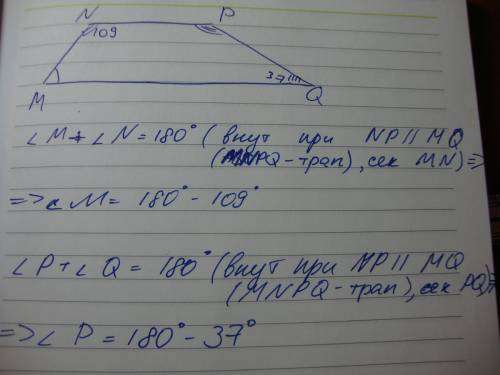 N P
109
37
M Q
∠M + ∠N = 180° (внут при NP || MQ
(MNPQ-трап), сек MN) =>
=> ∠M = 180° - 109°
∠P + ∠Q = 180° (внут при NP || MQ
(MNPQ-трап), сек PQ) =>
=> ∠P = 180° - 37°